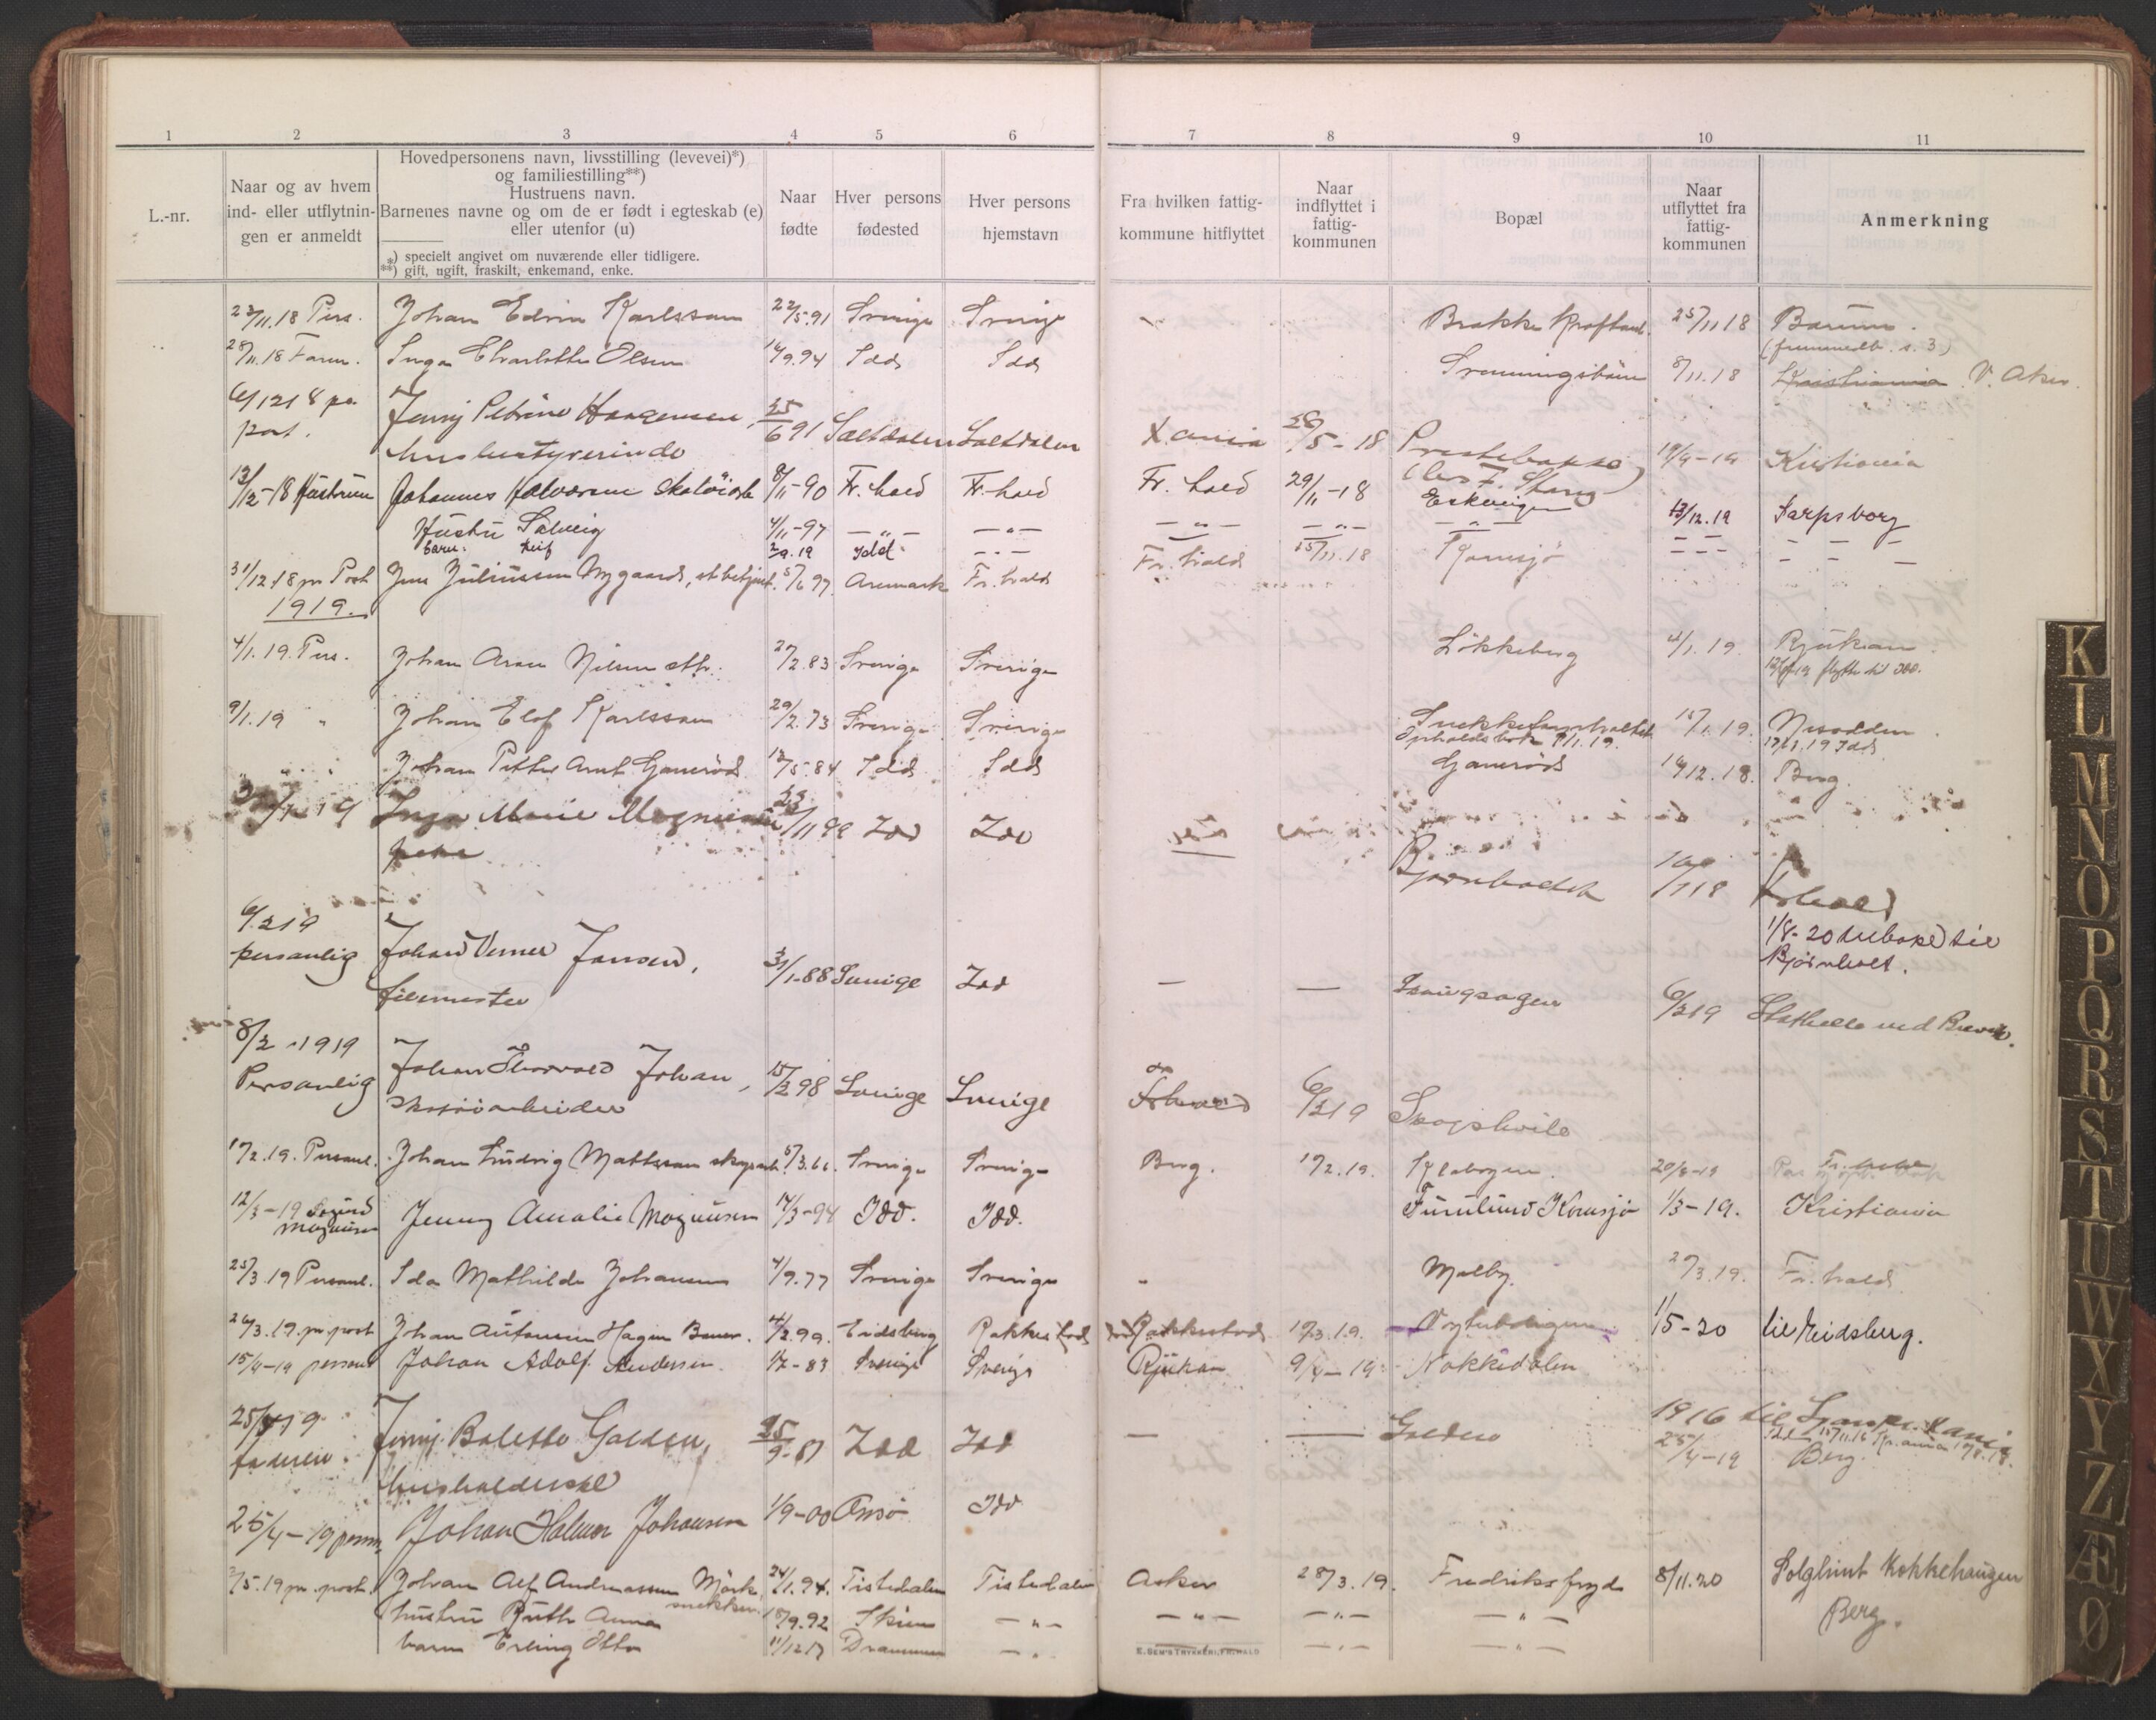 1 2 3 4 5 6 7 8 9 10 11
L.-nr.
Naar og av hvem
ind- eller utflytnin-
gen er anmeldt
Hovedpersonens navn, livsstilling (levevei)*)
og familiestilling**)
Hustruens navn.
Barnenes navne og om de er født i egteskab (e)
eller utenfor (u)
*) specielt angivet om nuværende eller tidligere.
**) gift, ugift, fraskilt, enkemand, enke.
Naar
fødte
Hver persons
fødested
Hver persons
hjemstavn
Fra hvilken fattig-
kommune hitflyttet
Naar
indflyttet i
fattig-
kommunen
Bopæl
Naar
utflyttet fra
fattig-
kommunen
Anmerkning
23/11.18 Pers. Johan Edvin Karlsson 22/5.91 Sverige Sverige - Brekke Kraftanl. 25/11 18 Bærum.
(fremmedb. s. 3)
28/11.18 Inga Charlotte Olsen 14/9.94 Idd Idd 8/11.18 Kristiania V. Aker.
6/12 18 pr. Jenny Petrine Haagensen, 25/6 91 Saltdalen Saltdalen X.ania 28/5-18 Prestebakke 19/4-19 Kristiania
post. husbestyrerinde
13/12-18 Hustruen Johannes Halvorsen 8/11-90 Fr.hald Fr.hald Fr.hald 29/11-18 Eskevigen 13/12.19 Sarpsborg
Hustru Solveig 4/11-97 — " — — " — — " — — " — — " — — — —
barn: Leif 2/9.19 Idd. — " — — — —
31/12.18 pr Post Jens Juliussen Nygaard, 5/6 97 Aremark Fr.hald Fr.hald 15/11.18 Kornsjø
1919.
4/1.19. Pers. Johan Aron Nilsen 27/2.83 Sverige Sverige Løkkeberg 4/1.19. Rjukan.
flyttet til Idd.
9/1.19 " Johan Elof Karlsson 29/2.73 Sverige Sverige 15/1.19. Nesodden.
Opholdsbok 9/1.19. 17/11.19 Idd
" " Johan Petter Arnt Ganerød 12/5.84 Idd Idd Ganerød 14/12.18. Berg.
/1 19 Inga Marie Magnussen 23/11 99 Idd Idd Bjørnholdt Fr.hald
1/8-20 tilbake til
Bjørnholt.
6/2 19
personlig Johan Verner Jansen, 31/1-88 Sverige Idd — — 6/2 19 Stathelle ved Brevik.
filemester
8/2 1919
Personlig Johan Thorvald Johan, 15/2 98 Sverige Sverige Fr.hald 6/2 19 Skogshvile
17/2.19. Personl. Johan Ludvig Mattsson 5/3.66. Sverige Sverige Berg. 17/2.19. 20/8-19 Fr.hald
12/3-19 Sigurd
Magnusen Jenny Amalie Magnusen 14/3-94 Idd. Idd. Furulund Kornsjø 1/3-19. Kristiania
25/3.19 Personl. Ida Mathilde Johansen 4/9.77 Sverige Sverige - Melby. 27/3.19. Fr.hald
26/3.19. pr. post Johan Antonsen Hagen 4/2.99. Eidsberg Rakkestad Rakkestad 19/3.19. 1/5-20 til Eidsberg.
15/4-19 personl Johan Adolf Andersen. 1/7-83 Sverige Sverige Rjukan 9/4-19. Nokkedalen
25/4 19 Jenny Balette Galden, 25/9-87 Idd Idd — — Galden 1916 til
faderen. husholderske 25/4-19 Berg.
25/4-19 person. Johan Holmer Johansen 1/9-00 Onsø Idd
2/5.19 pr. post. Johan Alf Andreassen Mørk 24/1.94. Tistedalen Tistedalen Asker 28/3.19. Fredriksfryd 8/11.20 Solglimt Kokkehaugen
snekker. Berg.
hustru Ruth Anna 15/9.92 Skien — " — — " — — " — — " —
barn Erling Otto 11/12 17 Drammen — " — — " — — " —
E. SEM'S TRYKKERI, FR.HALD
K L M N O P Q R S T U W X Y Z Æ Ø